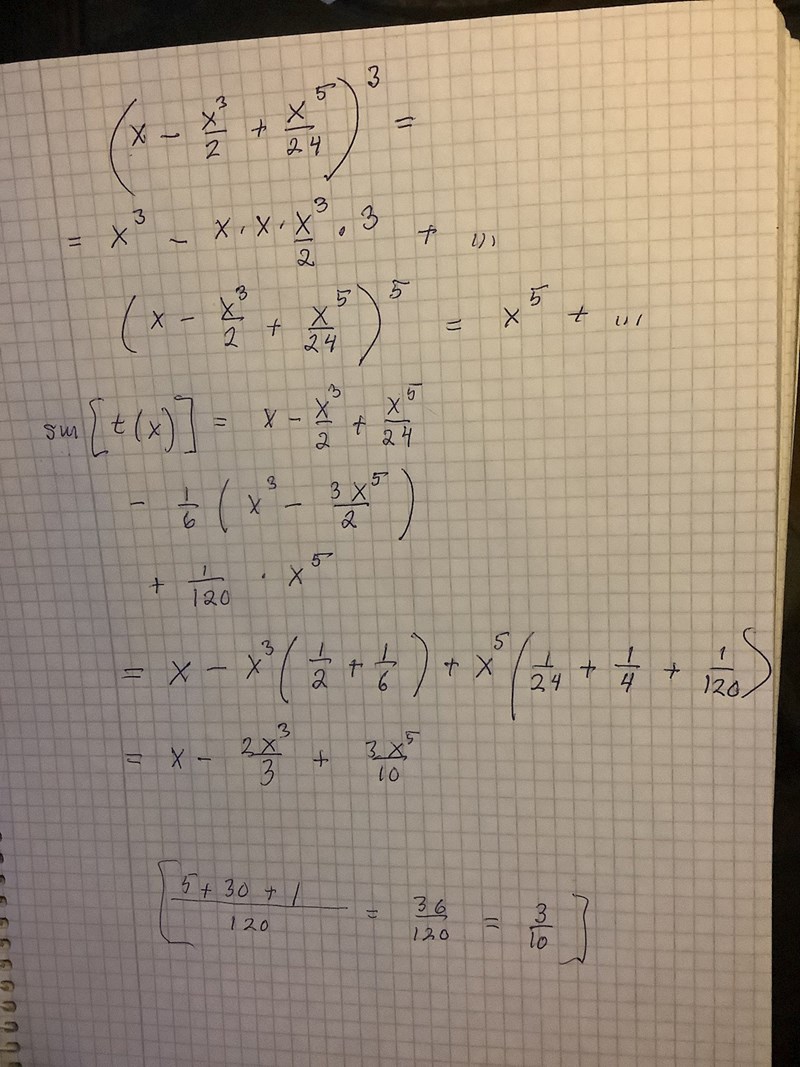 (x - x³/2 + x⁵/24)³ =
= x³ - x · x · x³/2 · 3 + ...
(x - x³/2 + x⁵/24)⁵ = x⁵ + ...
sin[t(x)] = x - x³/2 + x⁵/24
- 1/6 (x³ - 3x⁵/2)
+ 1/120 · x⁵
= x - x³(1/2 + 1/6) + x⁵(1/24 + 1/4 + 1/120)
= x - 2x³/3 + 3x⁵/10
[(5 + 30 + 1)/120 = 36/120 = 3/10]